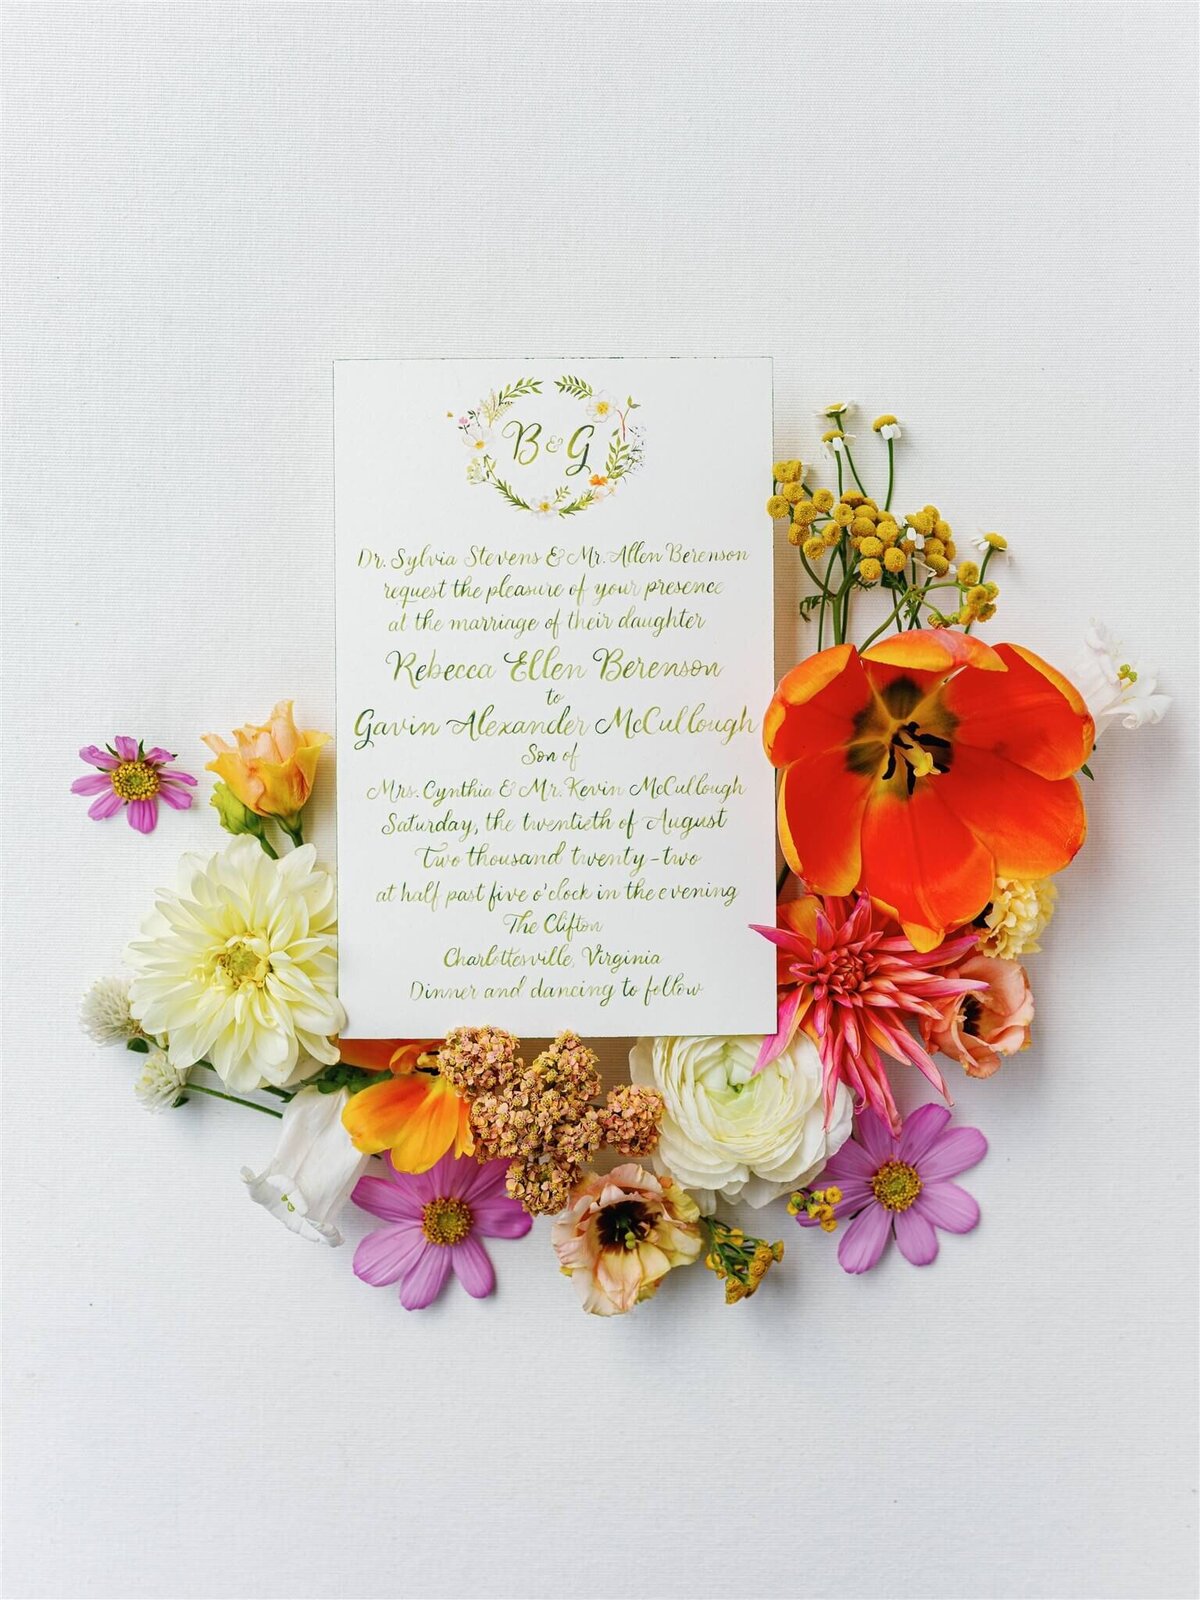 B & G
Dr. Sylvia Stevens & Mr. Allen Berenson
request the pleasure of your presence
at the marriage of their daughter
Rebecca Ellen Berenson
to
Gavin Alexander McCullough
Son of
Mrs. Cynthia & Mr. Kevin McCullough
Saturday, the twentieth of August
Two thousand twenty-two
at half past five o'clock in the evening
The Clifton
Charlottesville, Virginia
Dinner and dancing to follow